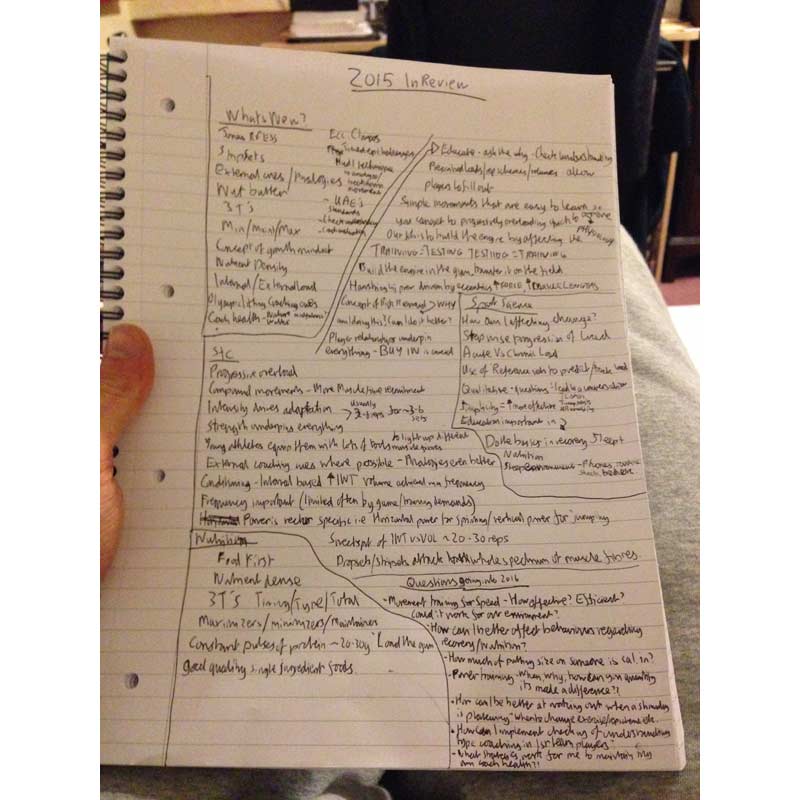 2015 In Review
What's New?
External cues / Analogies
Nut butter
3T's
Min/Max
Concept of growth mindset
Nutrient Density
Internal / External load
Olympic lifting Coaching cues
Coach health
Educate - ask the why - Check understanding
allow
players to fill out
Simple movements that are easy to learn so
you can get to progressively overloading
to build the engine by affecting the
TRAINING = TESTING TESTING = TRAINING
Build the engine in the gym, transfer it on the field
Concept of → WHY
am I doing this? Can I do it better?
Player relationships underpin
everything - BUY IN is crucial
Science
How am I affecting change?
Stepwise progression of load
Acute Vs Chronic Load
Use of Reference sets to predict/track load
Qualitative questions - lead to a conversation
Simplicity = ↑
Education important in
Do the basics in recovery
Nutrition
Sleep environment - Phones,
S+C
Progressive overload
Compound movements - More Muscle fibre recruitment
Intensity drives adaptation → usually reps for sets
Strength underpins everything
Young athletes equip them with lots of tools to light up different muscle fibres
External coaching cues where possible - Analogies even better
Conditioning - Interval based ↑ INT volume achieved via frequency
Frequency important (limited often by game/training demands)
Power is vector specific i.e. Horizontal power for sprinting/vertical power for jumping
Sweetspot of INT vs VOL ~ 20-30 reps
Dropsets/stripsets attack whole spectrum of muscle fibres.
Nutrition
Food First
Nutrient dense
3T's Timing/Type/Total
Maximizers/minimizers/maintainers
Constant pulses of protein ~ 20-30g "Load the gun"
good quality single ingredient foods.
Questions going into 2016
- Movement training for Speed - How effective? Efficient?
Could it work for our environment?
- How can I better affect behaviours regarding
recovery/Nutrition?
- How much of putting size on someone is cal. in?
- Power training - when, why, how can you quantify
its made a difference?!
- How can I be better at working out when a
is plateauing - when to change exercise/
- How can I implement checking of understanding
type coaching in 1st team players?
- What strategies work for me to maintain my
own coach health?!